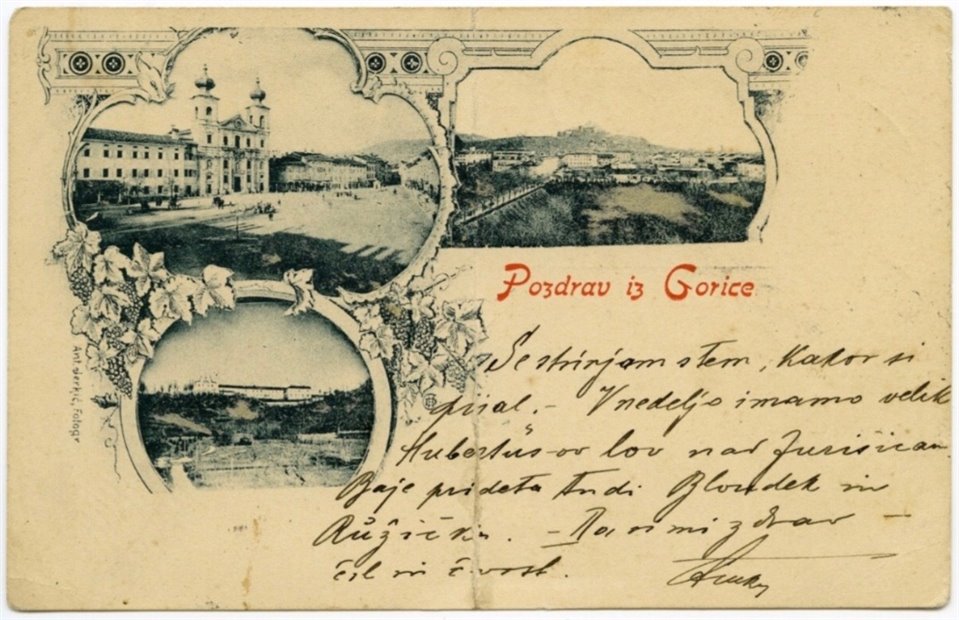 Pozdrav iz Gorice
Ant. Jerkić, Fotogr.
Se strinjam s tem, kakor si
pisal. – V nedeljo imamo velik
Hubertŭs-ov lov nad
Baje prideta tudi Blondek in
Růžička. – Ra zdrav –
čil in čvrst.